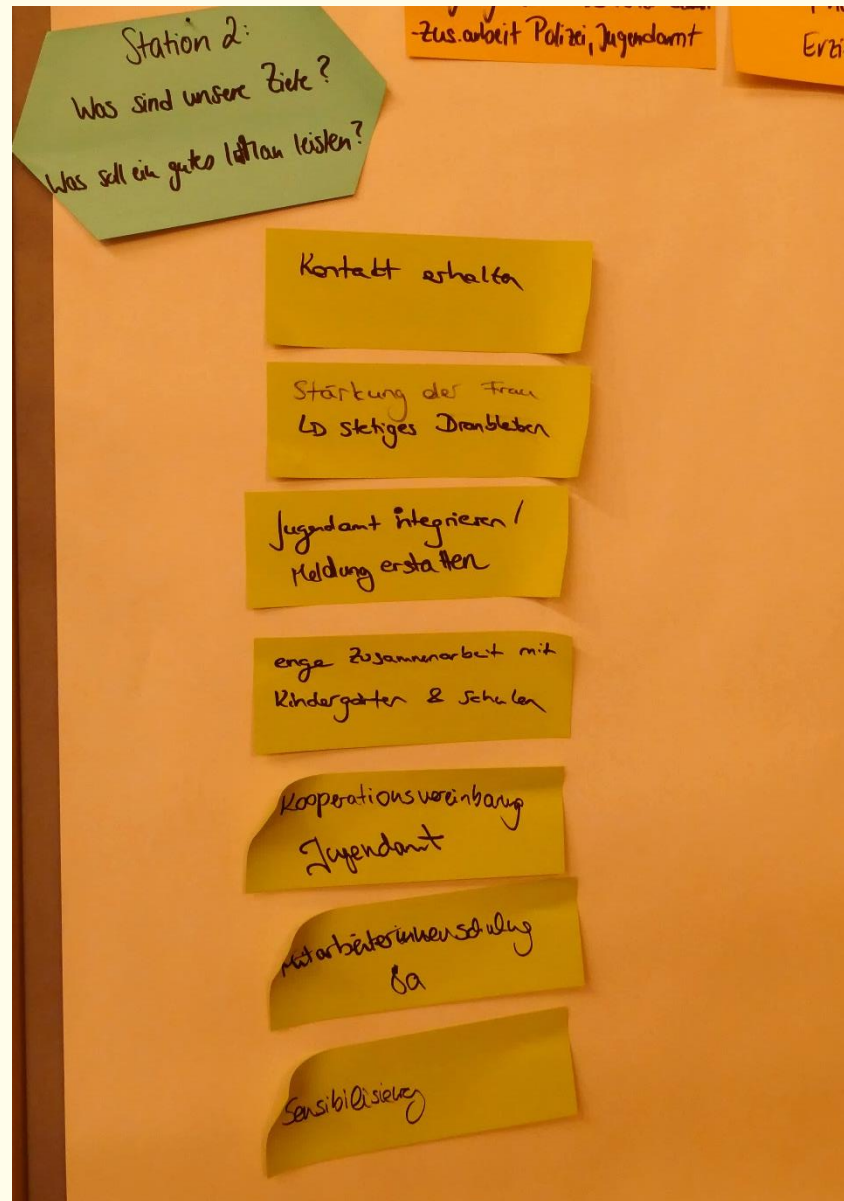 Station 2:
Was sind unsere Ziele?
Was soll ein gutes leisten?
-Zus.arbeit Polizei, Jugendamt
Erzi
Kontakt erhalten
Stärkung der Frau
↳ stetiges Dranbleiben
Jugendamt integrieren /
Meldung erstatten
enge Zusammenarbeit mit
Kindergärten & Schulen
Kooperationsvereinbarung
Jugendamt
Mitarbeiterinnenschulung
8a
Sensibilisierung